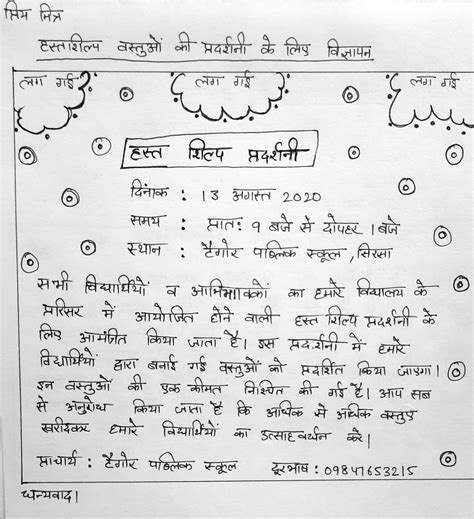 प्रिय मित्र
हस्तशिल्प वस्तुओं की प्रदर्शनी के लिए विज्ञापन
लग गई लग गई लग गई
हस्त शिल्प प्रदर्शनी
दिनांक : 13 अगस्त 2020
समय : प्रात: 9 बजे से दोपहर 1 बजे
स्थान : टैगोर पब्लिक स्कूल, सिरसा
सभी विद्यार्थियों व अभिभावकों का हमारे विद्यालय के
परिसर में आयोजित होने वाली हस्त शिल्प प्रदर्शनी के
लिए आमंत्रित किया जाता है। इस प्रदर्शनी में हमारे
विद्यार्थियों द्वारा बनाई गई वस्तुओं को प्रदर्शित किया जाएगा।
इन वस्तुओं की एक कीमत निश्चित की गई है। आप सब
से अनुरोध किया जाता है कि अधिक से अधिक वस्तुए
खरीदकर हमारे विद्यार्थियों का उत्साहवर्धन करे।
प्राचार्य : टैगोर पब्लिक स्कूल दूरभाष : 09847653215
धन्यवाद।